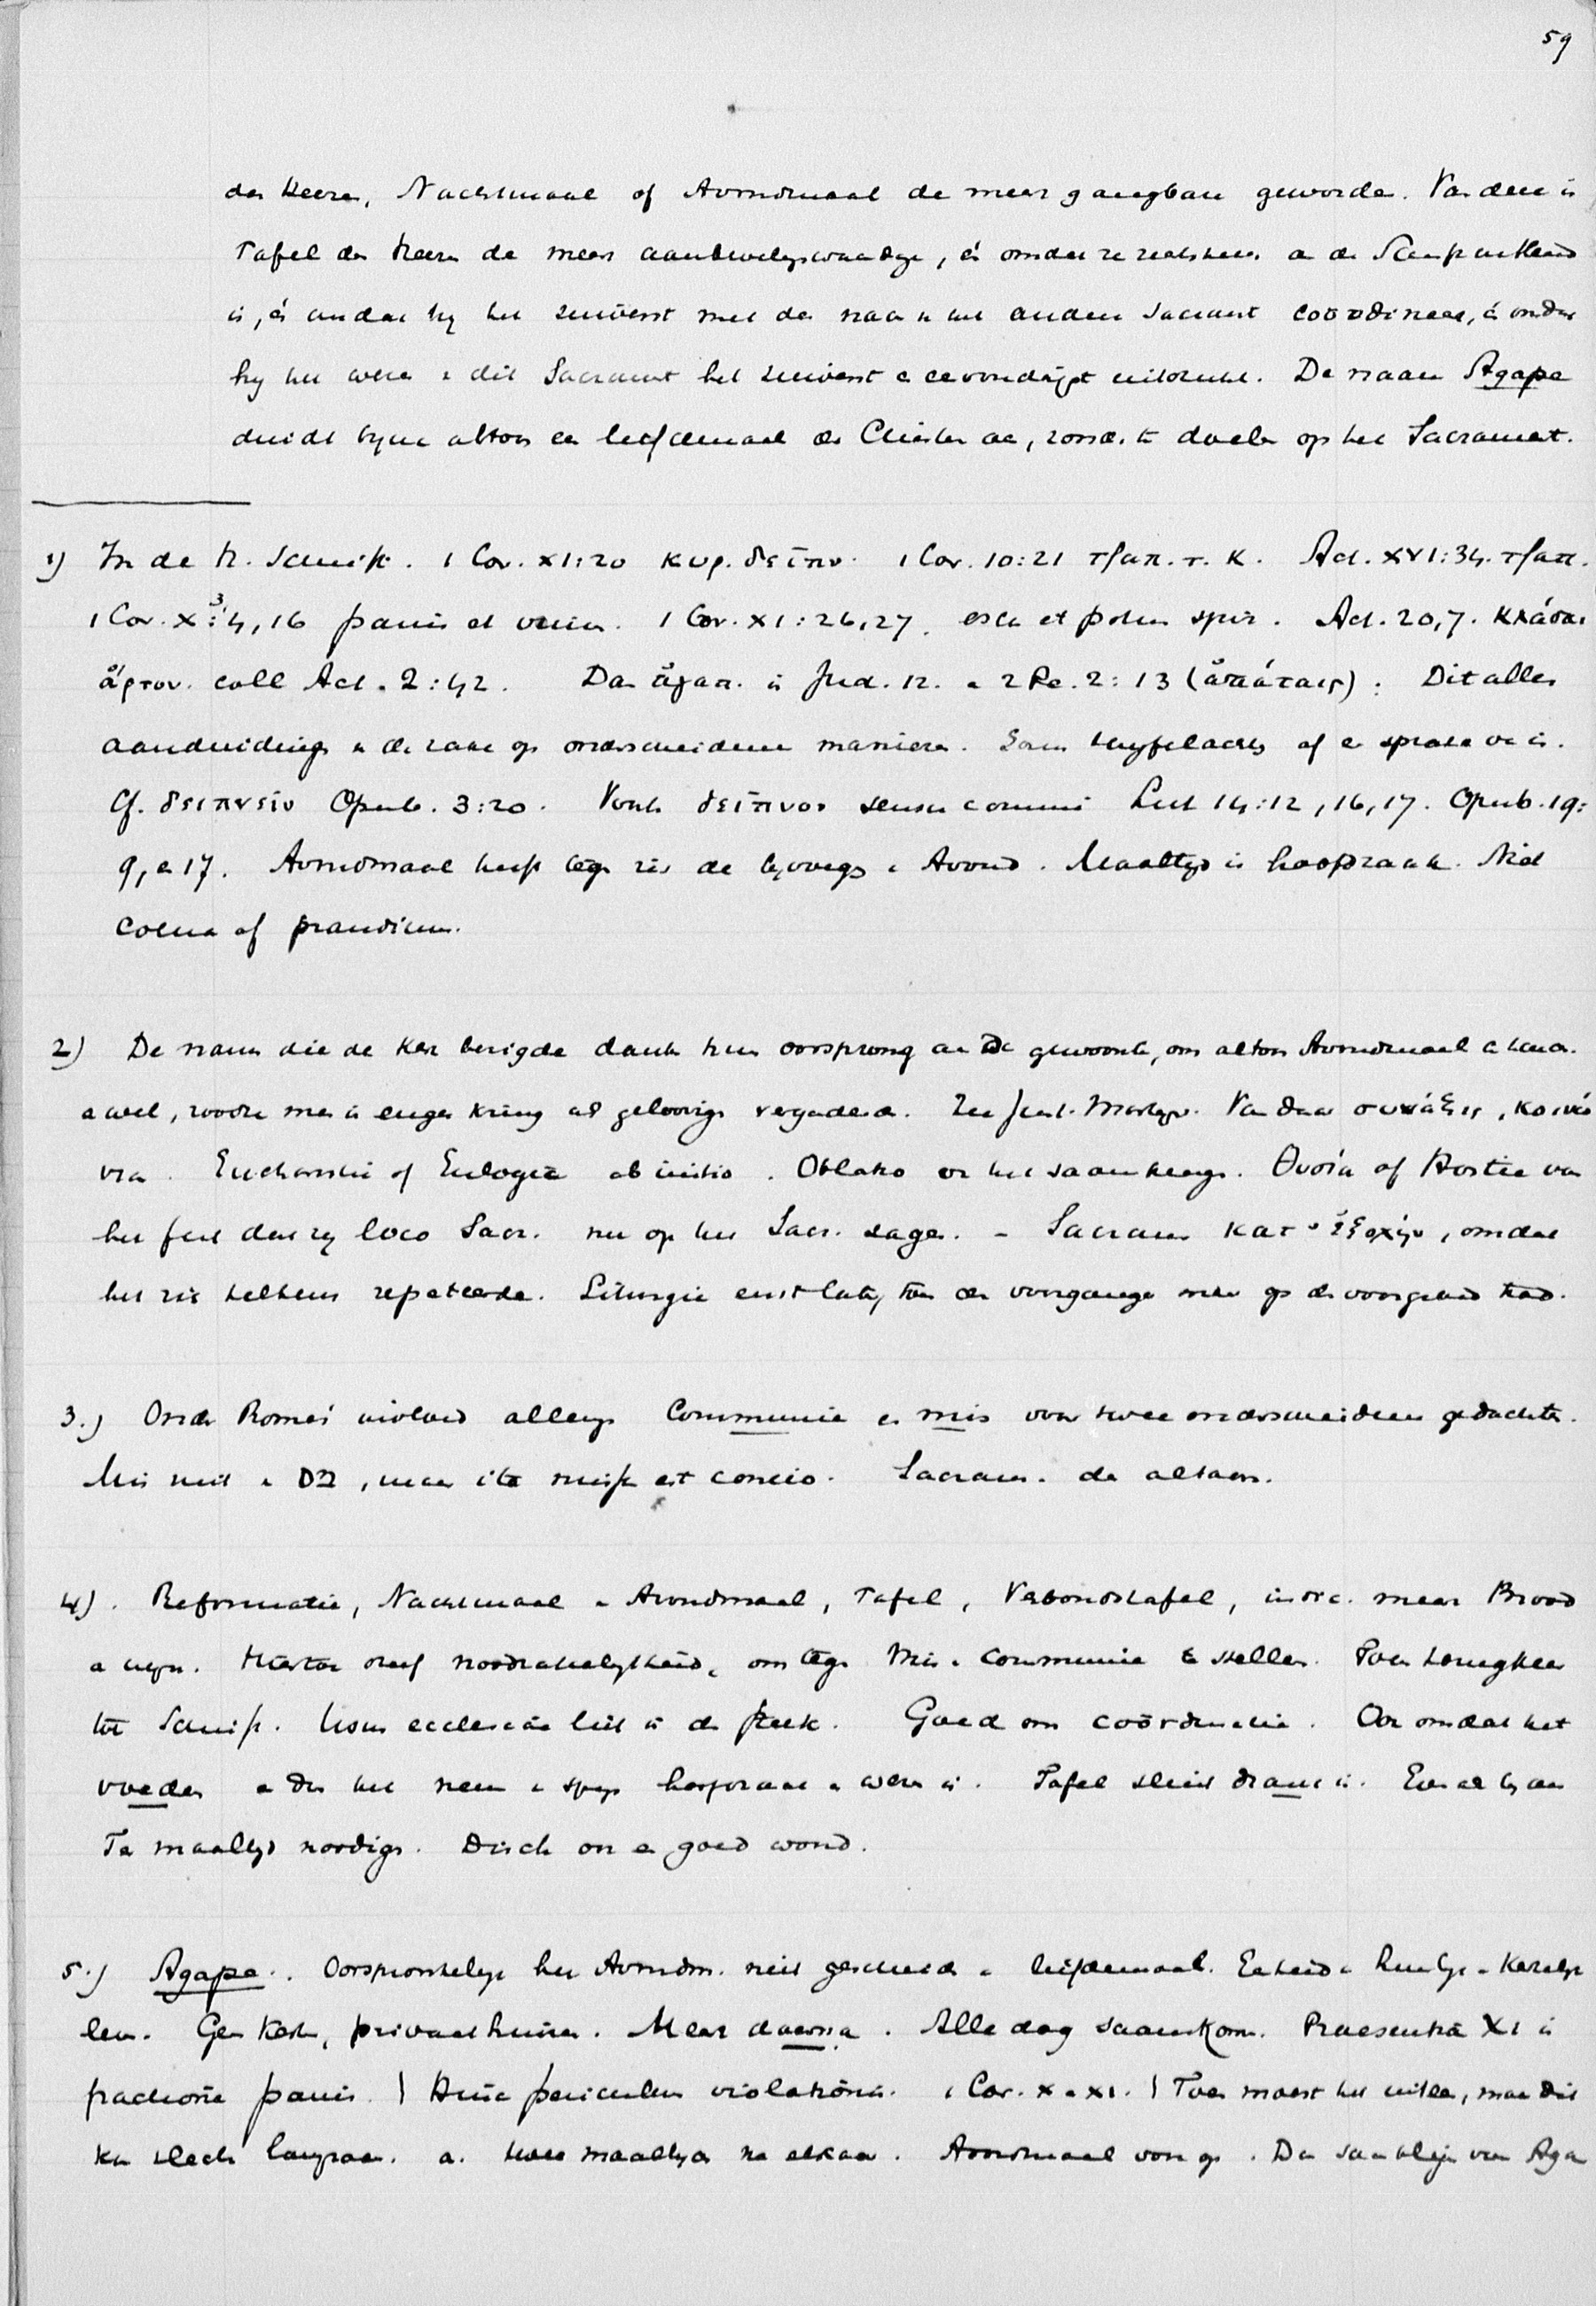 59
des Heeren, Nachtmaal of Avondmaal de meer gangbare geworden. Van deze is
Tafel des Heeren de meest aanbevelenswaardige, én omdat ze rechtstreeks aan de Schrift ontleend
is, én omdat hij het zuiverst met den naam van het andere Sacrament coördineert, én omdat
hij het wezen v. dit Sacrament het zuiverst en eenvoudigst uitdrukt. De naam Agape
duidt bijna altoos een liefdemaal der Christenen aan, zonder te doelen op het Sacrament.
1) In de H. Schrift. 1 Cor. XI:20 κυρ. δεῖπν. 1 Cor. 10:21 τραπ. τ. Κ. Act. XVI:34. τραπ.
1 Cor. X:3,4, 16 panis et vinum. 1 Cor. XI:26,27. esca et potus spir. Act. 20,7. κλάσαι
ἄρτον. coll Act. 2:42. Dan ἄγαπ. in Jud. 12. en 2 Pe. 2:13 (ἀπάταις). Dit alles
aanduiding v. de zaak op onderscheidene manieren. Soms twijfelachtig of er sprake van is.
Cf. δειπνεῖν Openb. 3:20. Voorts δεῖπνον sensu communi Luc 14:12, 16, 17. Openb. 19:
9, en 17. Avondmaal heeft tegen zich de bijvoeging v. Avond. Maaltijd is hoofdzaak. Niet
coena of prandium.
2) De namen die de Kerk bezigde danken hun oorsprong aan de gewoonte, om altoos Avondmaal te houden.
en wel, zoodra men in engen kring als geloovigen vergaderde. Zie Just. Martyr. Van daar σύναξις, κοινω
νια. Eucharistie of Eulogia ab initio. Oblatio om het saambrengen. Θυσία of Hostie van
het feit dat zij loco Sacr. nu op het Sacr. zagen. – Sacram. κατ' ἐξοχήν, omdat
het zich telkens repeteerde. Liturgie eerst later, toen de voorganger meer op den voorgrond trad.
3.) Onder Rome's invloed allengs Communie en mis voor twee onderscheidene gedachten.
Mis niet v. מס, maar ita missa est concio. Sacram. des altaars.
4). Reformatie, Nachtmaal en Avondmaal, Tafel, Verbondstafel, meer Brood
en wijn. Hiertoe dreef noodzakelijkheid, om tegen Mis en Communie te stellen. Toen terugkeer
tot Schrift. Usus ecclesiae liet in de steek. Goed om coördinatie. Ook omdat het
voeden en dus het nemen v. spijs hoofdzaak v. wezen is. Tafel sluit drank in. Even als bij een
Te maaltijd noodigen. Disch ook een goed woord.
5.) Agape. Oorspronkelijk het Avondm. niet gescheiden v. liefdemaal. Eenheid v. huislijk en Kerkelijk
leven. Geen Kerken, privaathuizen. Maar daarna. Alle dag saamkomen. Praesentia Xi in
fractione panis. | Hinc periculum violationis. 1 Cor. X en XI. | Toen moest het uiteen, maar dit
kon slechts langzaam. a. twee maaltijden na elkaar. Avondmaal voorop. Dan saamblijven voor Aga